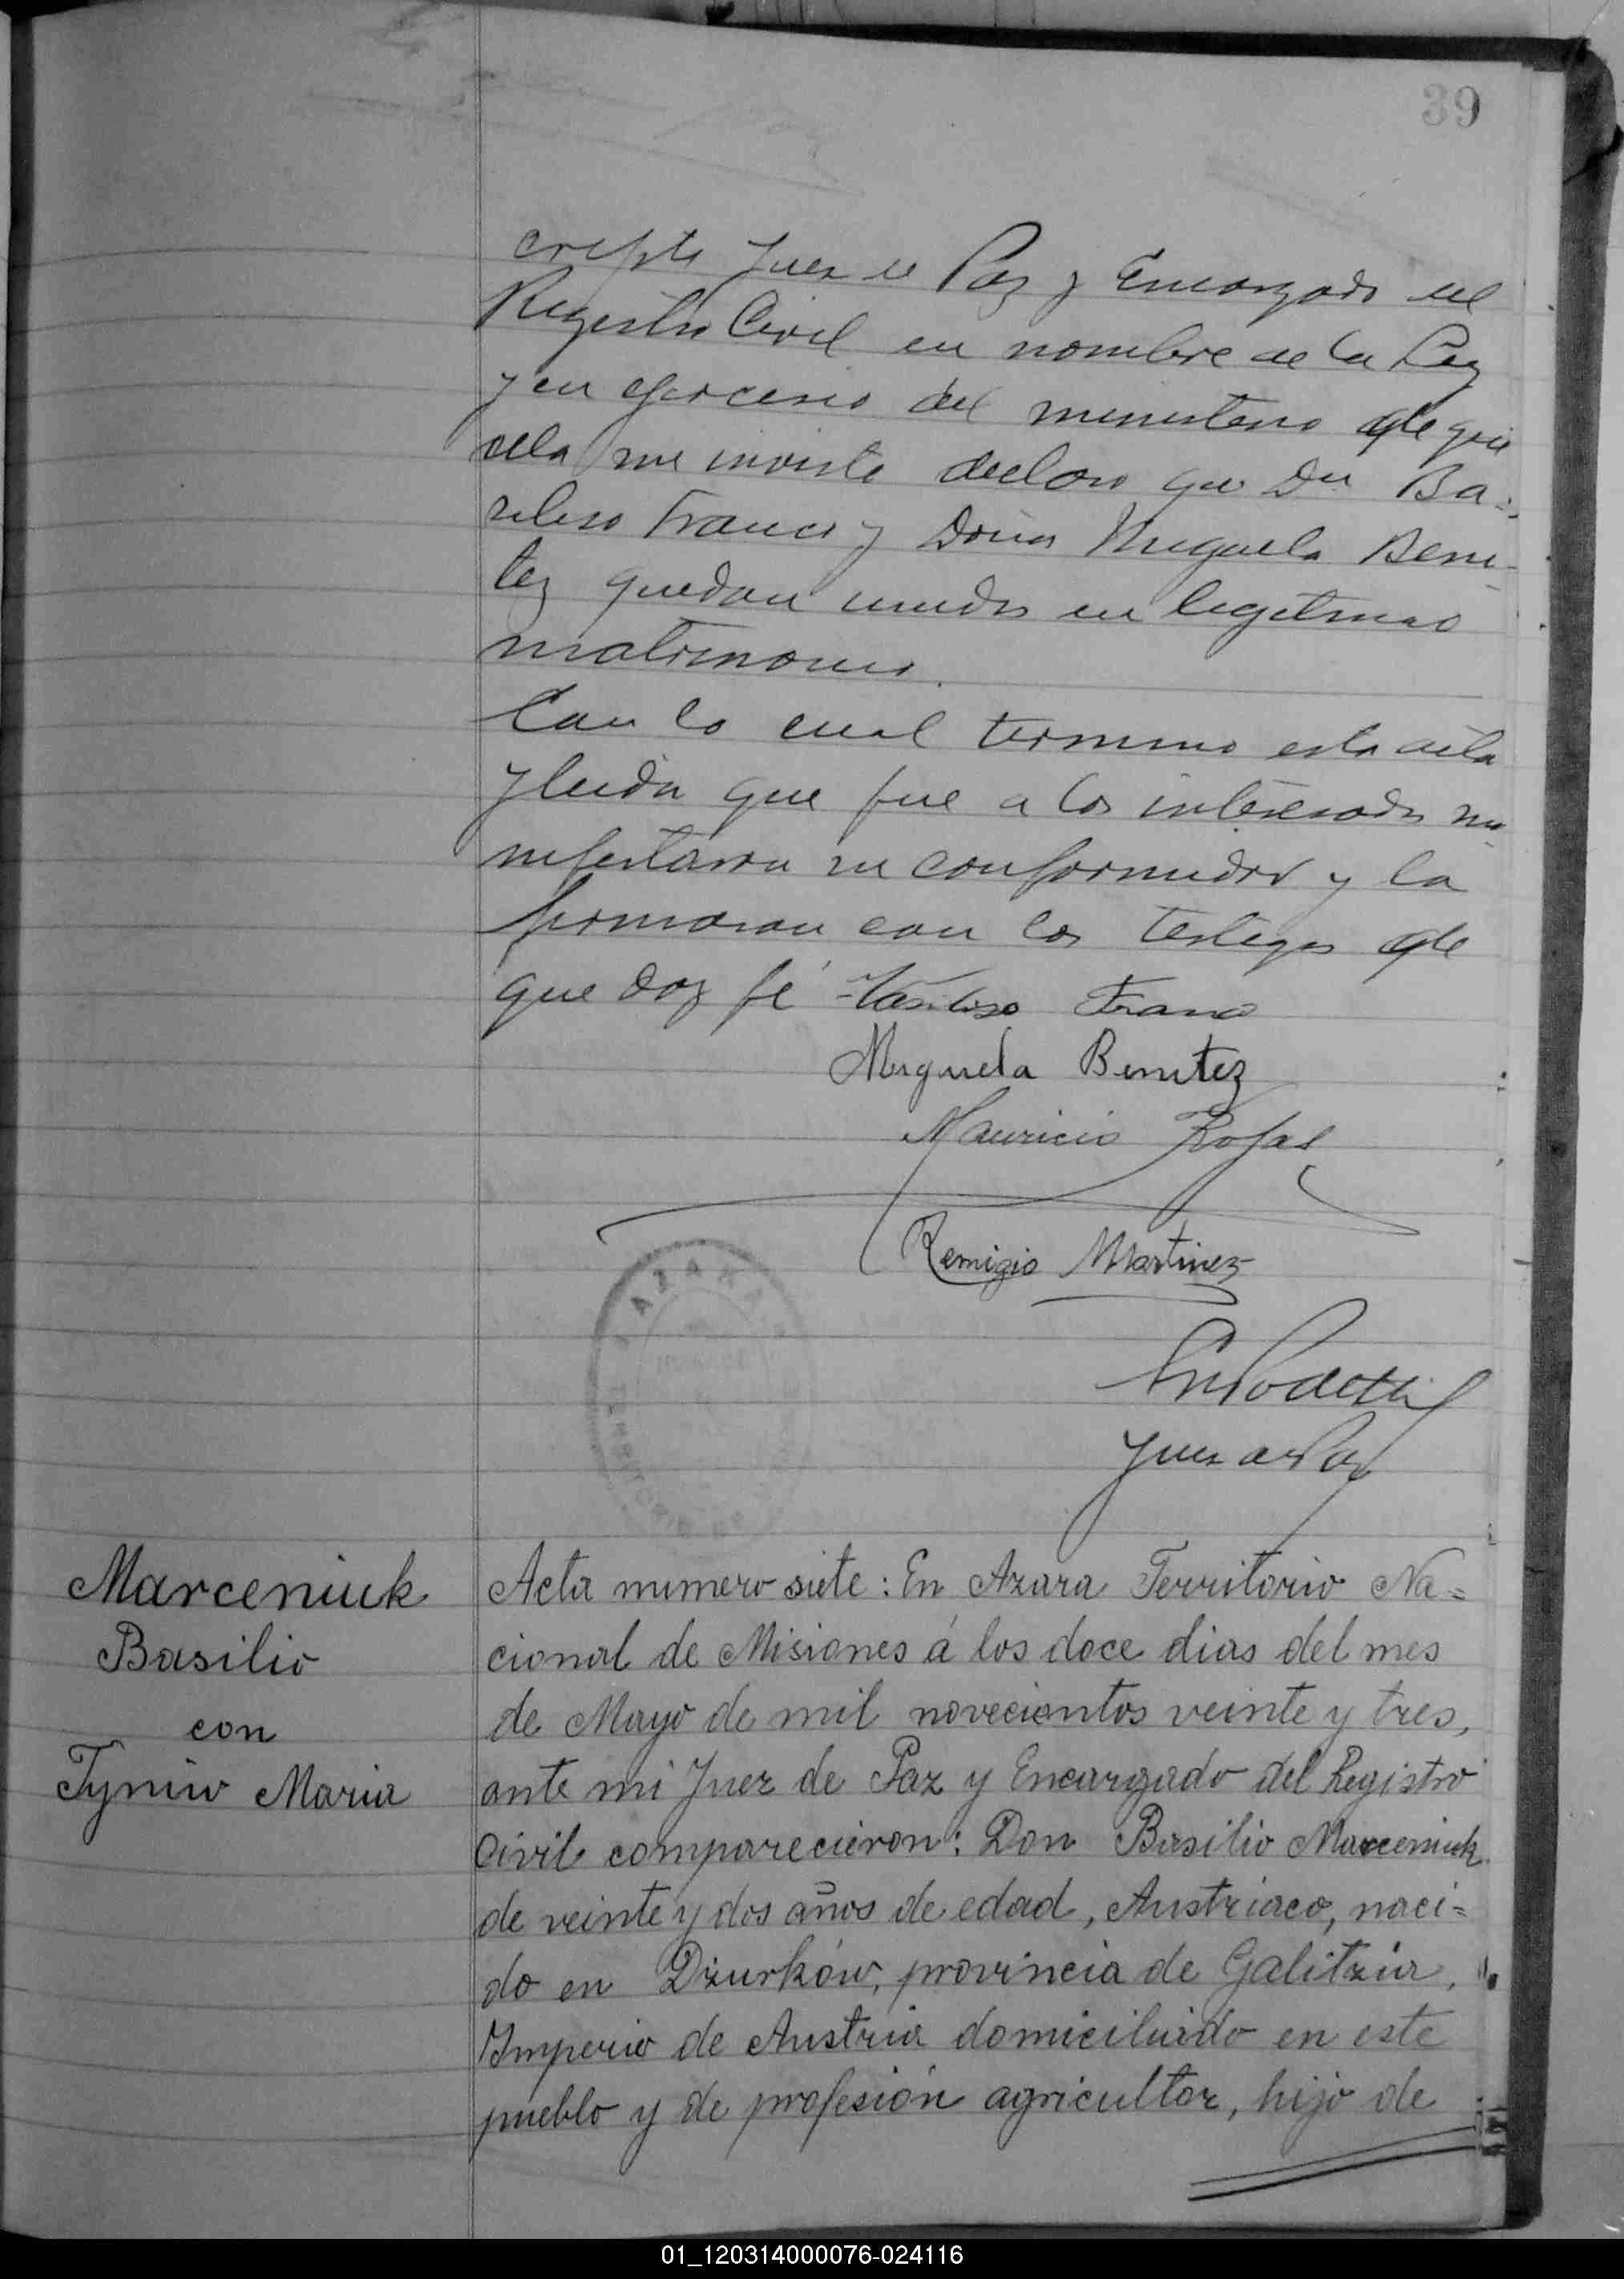 39
cripto Juez de Paz y Encargado del
Registro Civil en nombre de la Ley
y en ejercicio del ministerio de que
ella me inviste declaro que Don Ba-
siliso Franco y Doña Miguela Beni-
tez quedan unidos en legitimo
matrimonio.
Con lo cual termino esta acta
y leida que fue a los interesados ma
nifestaron su conformidad y la
firmaron con los testigos de
que doy fé Franco
Miguela Benitez
Mauricio Rojas
Remigio Martinez
AZARA
TERRITORIO DE
Juez de Paz
Marceniuk
Basilio
con
Tyniw Maria
Acta numero siete: En Azara Territorio Na=
cional de Misiones á los doce dias del mes
de Mayo de mil novecientos veinte y tres,
ante mi Juez de Paz y Encargado del Registro
Civil comparecieron: Don Basilio Marceniuk
de veinte y dos años de edad, Austriaco, naci=
do en Dżurków, provincia de Galitzia,
Imperio de Austria domiciliado en este
pueblo y de profesión agricultor, hijo de
01_120314000076-024116